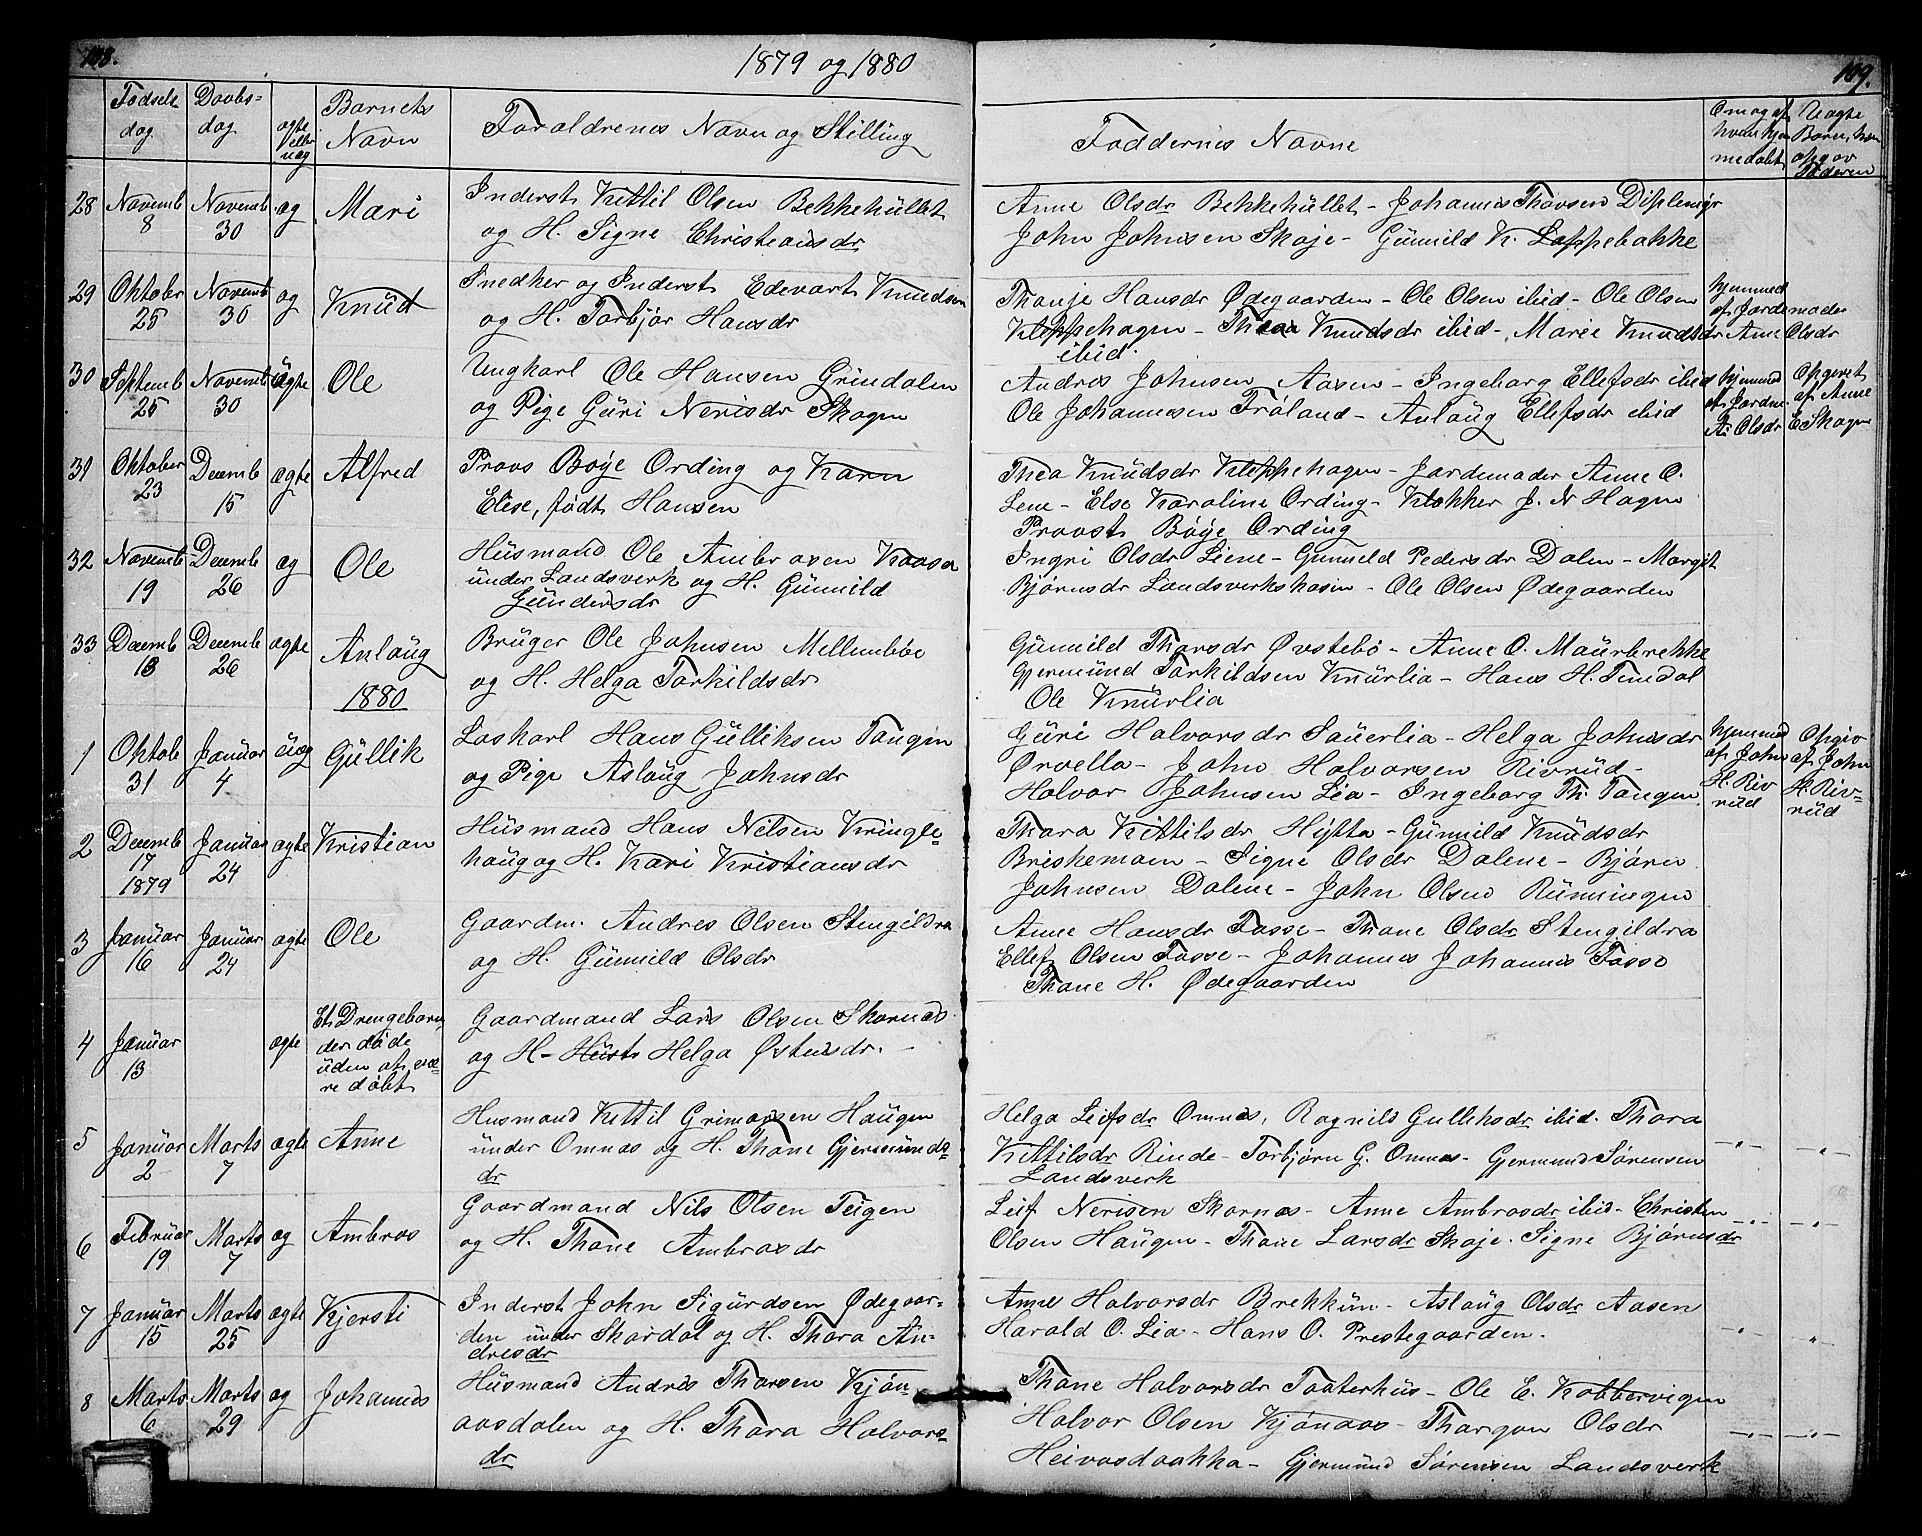 108.
1879 og 1880
109.
Fødsels
dag
Daabs-
dag
ægte
eller
uæg
Barnets
Navn
Forældrenes Navn og Stilling
Faddernes Navne
Om og af
hvem hjem
medøbt
Uægte
Børn, hvem
opgav
Faderen
28 Novemb 8
Novemb 30
æg
Mari
Inderst Kittil Olsen Bekkehullet
og H. Signe Christiansdr
Anne Olsdr Bekkehullet - Johannes Thovsen
John Johnsen Skoje - Gunnild K. Loppebakke
29 Oktober 25
Novemb 30
æg
Knud
Snedker og Inderst Edevart Knudsen
og H. Torbjør Hansdr
Thonje Hansdr Ødegaarden - Ole Olsen ibid - Ole Olsen
Kleppehagen - Thea Knudsdr ibid - Marie Knudsdr
ibid.
hjemmed
af Jordemoder
Anne Olsdr
30 Septemb 25
Novemb 30
uægte
Ole
Ungkarl Ole Hansen Grindalen
og Pige Guri Nerisdr Skogen
Andres Johnsen Aasen - Ingeborg Ellefsdr ibid
Ole Johannesen Frøland - Anlaug Ellefsdr ibid
hjemmed
af Jordm.
A. Olsdr
Opgivet
af Anne
E. Skogen
31 Oktober 23
Decemb 15
ægte
Alfred
Provs Bøye Ording og Karn
Elise, født Hansen
Thea Knudsdr Kleppehagen - Jordemoder Anne O.
Lene - Else Karoline Ording - Klokker J. N Hagen
Provst Bøye Ording
32 Novemb 19
Decemb 26
æg
Ole
Husmand Ole Ambrosen Kaasa
under Landsverk og H. Gunnild
Gundersdr
Ingri Olsdr Liene - Gunnild Pedersdr Dalen - Margit
Bjørnsdr Landsverkskasin - Ole Olsen Ødegaarden
33 Decemb 13
Decemb 26
ægte
Anlaug
Bruger Ole Johnsen Mellembøe
og H. Helga Torkildsdr
Gunnild Thorsdr Øvstebø - Anne O. Maurbrekke
Gjermund Torkildsen Knurlia - Hans H. Tindal
Ole Knurlia
1880
1 Oktob 31
Januar 4
uæg
Gullik
Løskarl Hans Gulliksen Tangen
og Pige Aslaug Johnsdr
Guri Halvorsdr Sauerlia - Helga Johnsdr
Ørvella - John Halvorsen Rivrud -
Halvor Johnsen Lia - Ingeborg Th. Tangen
hjemmed
af John
H. Riv
rud
Opgiv
af John
H. Riv=
rud
2 Decemb 17 1879
Januar 24
ægte
Kristian
Husmand Hans Nilsen Kringle=
haug og H. Kari Kristiansdr
Thora Kittilsdr Hytta - Gunnild Knudsdr
Briskemoen - Signe Olsdr Dalene - Bjørn
Johnsen Dalene - John Olsen Runningen
3 Januar 16
Januar 24
ægte
Ole
Gaardm. Andres Olsen Stengildra
og H. Gunnild Olsdr
Anne Hansdr Fosse - Thone Olsdr Stengildra
Ellef Olsen Fosse - Johannes Johannes Fosse
Thone H. Ødegaarden
4 Januar 13
ægte
Et Drengebarn,
der døde
uden at væ=
re døbt
Gaardmand Lars Olsen Skornes
og H- Helga Østensdr. -
5 Januar 2
Marts 7
ægte
Anne
Husmand Kittil Grimarsen Haugen
under Omnæs og H. Thone Gjermunds=
dr
Helga Leifsdr Omnæs, Ragnild Gulliksdr ibid. Thora
Kittilsdr Rinde - Torbjørn G. Omnes - Gjermund Sørensen
Landsverk
6 Februar 19
Marts 7
æg
Ambros
Gaardmand Nils Olsen Teigen
og H. Thone Ambrosdr
Leif Nerisen Skornæs - Anne Ambrosdr ibid - Christen
Olsen Haugen - Thone Larsdr Skoje. Signe Bjørnsdr
7 Januar 15
Marts 25
ægte
Kjersti
Inderst John Sigurdsen Ødegaar=
den under Skardal og H. Thora An=
dresdr
Anne Halvorsdr Brekkun - Aslaug Olsdr Aasen
Harald O. Lia - Hans O. Prestegaarden.
8 Marts 6
Marts 29
æg
Johannes
Husmand Andres Thorsen Kjøn=
aasdalen og H. Thora Halvors=
dr
Thone Halvorsdr Taaterhus - Ole E. Kobbervigen
Halvor Olsen Kjønaas - Thorgon Olsdr
Heivasdaakka - Gjermund Sørensen Landsverk